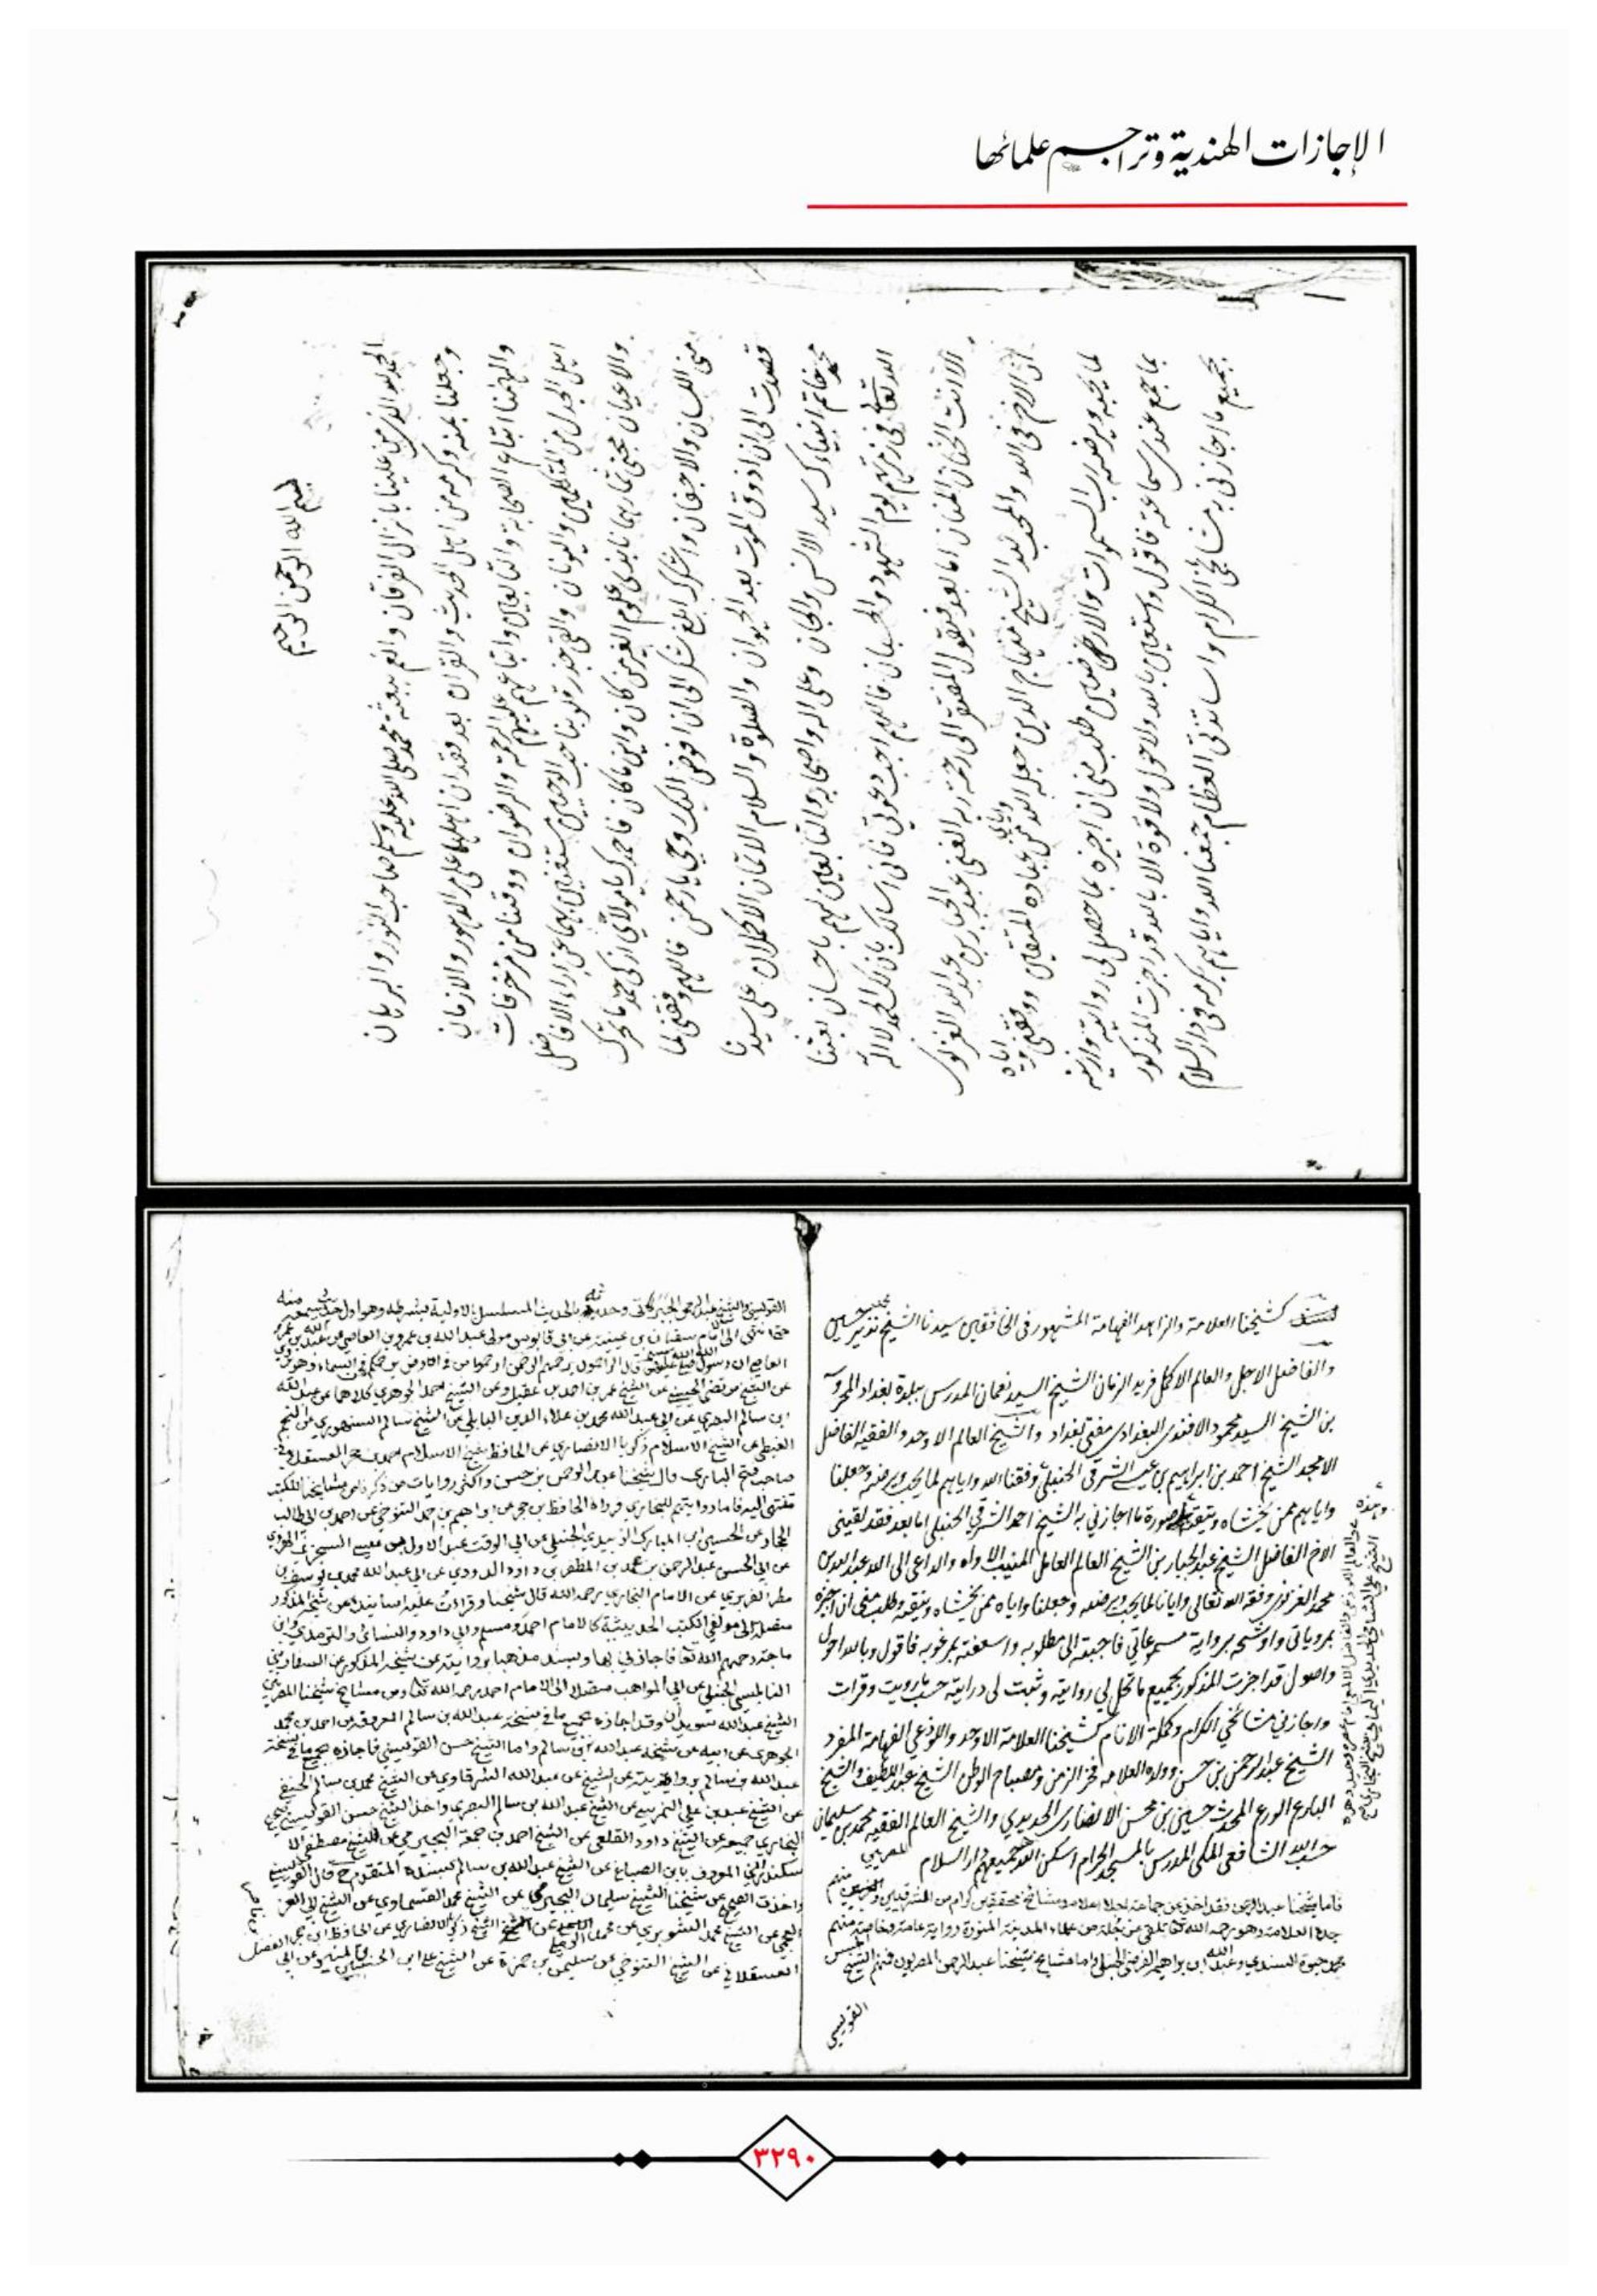 الإجازات الهندية وتراجم علمائها
بسم الله الرحمن الرحيم
الحمد لله الذي من علينا بانزال الفرقان وانعم ببعثة محمد صلى الله عليه وسلم صاحب النور والبرهان
وجعلنا بمنه وكرمه من اهل الحديث والقرآن بعد فقدان اهلها على مر الدهور والازمان
والهمنا اتباع الصحابة والتابعين واتباعهم عليهم الرحمة والرضوان ووقينا من مزخرفات
اهل الجدل من المتكلمين واليونان والقى في قلوبنا حب الوحيين مستغنين بهما عن اراء الافاضل
والاعيان مجتني ثمارهما نابذي علوم الغير من كان واين ما كان فاحمدك يا مولاي ازكى حمد ما تحرك
مني اللسان والاجفان واشكرك ابلغ شكر الى ان افوض اليك روحي يا رحمن فاللهم وفقني لما
قصدت الى ان اذوق الموت بعد الحيوان والصلوة والسلام الاتمان الاكملان على سيدنا
محمد خاتم انبياءك سيد الانس والجان وعلى اله واصحابه والتابعين لهم باحسان بعثنا
الله تعالى في زمرتهم يوم الشهود والحسبان فاللهم اجب دعوتي فاني اسالك بان لك الحمد لا اله
الا انت الحنان المنان اما بعد فيقول المفتقر الى رحمة ربه الغني عبد الجبار بن عبد الله الغزنوي
ان الاخ في الله والمحب لله الشيخ منهاج الدين جعله الله من عباده المتقين ووفقني واياه
لما يحبه ويرضيه رب السموات والارضين طلب مني ان اجيزه بما حصل لي روايته وان
بما جمع عندي سماعة فاقول واستعين بالله ولا حول ولا قوة الا بالله قد اجزت المذكور
بجميع ما اجازني به مشائخي الكرام واساتذتي العظام جمعنا الله واياهم بكرمه في دار السلام
كشيخنا العلامة والزاهد الفهامة المشهور في الخافقين سيدنا الشيخ محمد نذير حسين
والفاضل الاجل والعالم الاكمل فريد الزمان الشيخ السيد نعمان المدرس ببلدة بغداد المحروسة
بن الشيخ السيد محمود الافندي البغدادي مفتي بغداد والشيخ العالم الاوحد والفقيه الفاضل
الامجد الشيخ احمد بن ابراهيم بن عيسى الشرقي الحنبلي وفقنا الله واياهم لما يحب ويرضى وجعلنا
واياهم ممن يخشاه ويتقيه صورة ما اجازني به الشيخ احمد الشرقي الحنبلي اما بعد فقد لقيني
الاخ الفاضل الشيخ عبد الجبار بن الشيخ العالم العامل المنيب الاواه والداعي الى الله عبد الله بن
محمد الغزنوي وفقه الله تعالى وايانا لما يحب ويرضى وجعلنا واياه ممن يخشاه ويتقيه وطلب مني ان اجيزه
بمروياتي واوشحه برواية مسموعاتي فاجبته الى مطلوبه واسعفته بمرغوبه فاقول وبالله احول
واصول قد اجزت المذكور بجميع ما تحل لي روايته وثبت لي درايته حسب ما رويت وقرات
واجازني مشائخي الكرام وكملة الانام كشيخنا العلامة الاوحد واللوذعي الفهامة المفرد
الشيخ عبد الرحمن بن حسن وولده العلامة فخر الزمن ومصباح الوطن الشيخ عبد اللطيف والشيخ
البارع الورع المحدث حسين بن محسن الانصاري الحديدي والشيخ العالم الفقيه محمد بن سليمان
حسب الله الشافعي المكي المدرس بالمسجد الحرام اسكن الله جميعهم دار السلام
فاما شيخنا عبد الرحمن فقد اخذ عن جماعة اجلاء اعلام ومشائخ محققين كرام من المشرقيين والمصريين منهم
جده العلامة وهو رحمه الله تعالى تلقى عن جملة من علماء المدينة المنورة رواية عامة وخاصة منهم
محمد حيوة السندي وعبد الله بن ابراهيم الفرضي الحنبلي واما مشايخ شيخنا عبد الرحمن المصريون فمنهم الشيخ حسن
القويسني
القويسني والشيخ عبد الرحمن الجبرتي وحدثه بالحديث المسلسل بالاولية بشرطه وهو اول حديث سمعه منه
حتى انتهى الى الامام سفيان بن عيينة عن ابي قابوس مولى عبد الله بن عمرو بن العاص عن عبد الله بن عمرو
العاص ان رسول الله صلى الله عليه وسلم قال الراحمون يرحمهم الرحمن ارحموا من في الارض يرحمكم من في السماء وهو
عن الشيخ مرتضى الحسيني عن الشيخ عمر بن احمد بن عقيل وعن الشيخ احمد الجوهري كلاهما عن عبد الله
ابن سالم البصري عن ابي عبد الله محمد بن علاء الدين البابلي عن الشيخ سالم السنهوري عن النجم
الغيطي عن الشيخ الاسلام زكريا الانصاري عن الحافظ شيخ الاسلام احمد بن حجر العسقلاني
صاحب فتح الباري قال شيخنا عبد الرحمن بن حسن واكثر روايات من ذكرنا من مشايخنا للكتب
تنتهي اليه فاما روايتهم للبخاري فرواه الحافظ بن حجر عن ابراهيم بن احمد التنوخي عن احمد بن ابي طالب
الحجار عن الحسين بن المبارك الزبيدي الحنبلي عن ابي الوقت عبد الاول بن عيسى السجزي الهروي
عن ابي الحسن عبد الرحمن بن محمد بن المظفر بن داود الداودي عن ابي عبد الله محمد بن يوسف بن
مطر الفربري عن الامام البخاري رحمه الله قال شيخنا وقرات عليه اسانيده عن شيخه المذكور
متصلة الى مولفي الكتب الحديثية كالامام احمد ومسلم وابي داود والنسائي والترمذي وابن
ماجة رحمهم الله تعالى فاجازني بها وبسند مذهبنا بروايته عن شيخه المذكور عن السفاريني
النابلسي الحنبلي عن ابي المواهب متصلا الى الامام احمد رحمه الله تعالى ومن مشايخ شيخنا المصريين
الشيخ عبد الله سويدان وقد اجازه بجميع ما في نسخة عبد الله بن سالم المعروفة عن احمد بن محمد
الجوهري عن ابيه عن شيخه عبد الله بن سالم واما الشيخ حسن القويسني فاجازه بجميع ما في نسخة
عبد الله بن سالم بروايته عن الشيخ عبد الله الشرقاوي عن الشيخ محمد بن سالم الحفني
عن الشيخ عيد بن علي النمرسي عن الشيخ عبد الله بن سالم البصري واخذ الشيخ حسن القويسني صحيح
البخاري جميعه عن الشيخ داود القلعي عن الشيخ احمد بن جمعة البجيرمي عن الشيخ مصطفى الا
سكندراني المعروف بابن الصباغ عن الشيخ عبد الله بن سالم بسنده المتقدم ح قال القويسني
واخذت الصحيح عن شيخنا الشيخ سليمان البجيرمي عن الشيخ محمد العشماوي عن الشيخ ابي العز
العجمي عن الشيخ محمد الشوبري عن محمد الرملي عن الشيخ زكريا الانصاري عن الحافظ ابن حجر
العسقلاني عن الشيخ التنوخي عن سليمان بن حمزة عن الشيخ علي ابن الحسين بن المنير عن ابي الفضل
٣٢٩٠